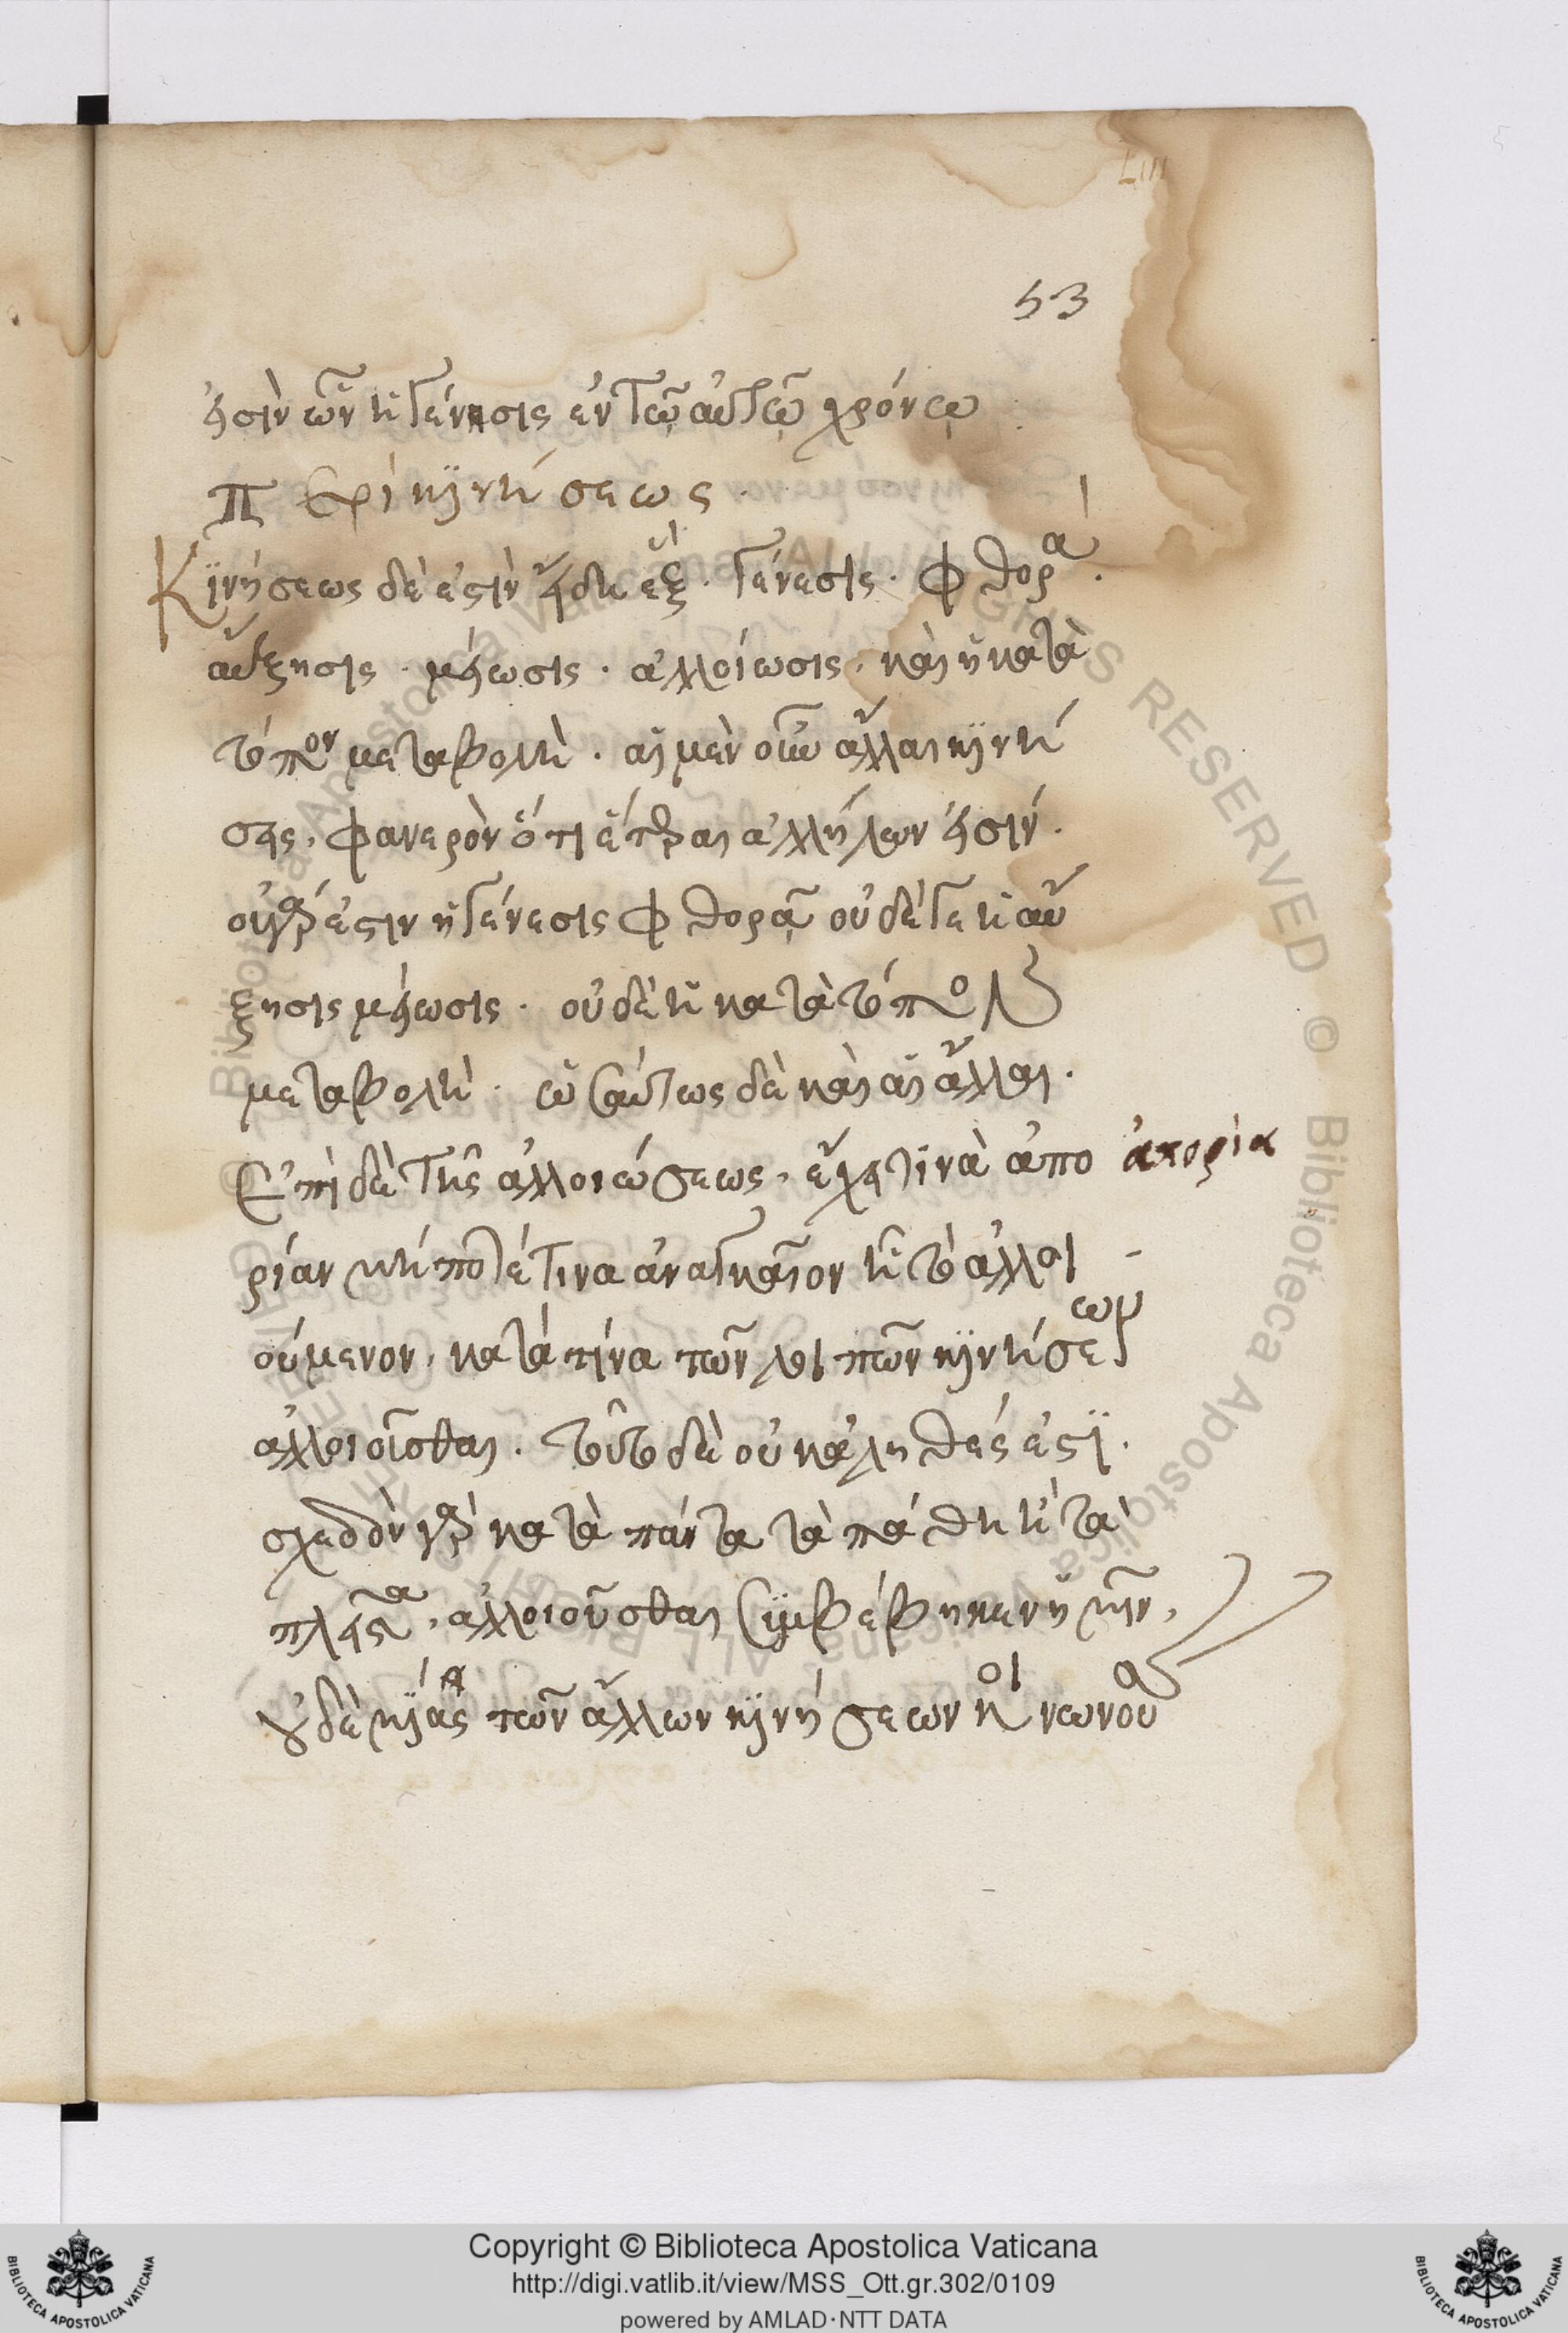 LIII
53
εἰσὶν ὧν ἡ γένησις ἐν τῷ αὐτῷ χρόνῳ
Περὶ κϊνήσεως .
Κϊνήσεως δέ ἐστιν εἴδη ἕξ · γένεσις · φθορά ·
αὔξησις · μείωσις · ἀλλοίωσις · καὶ ἡ κατὰ
τόπον μεταβολὴ · αἱ μὲν οὖν ἄλλαι κϊνή
σεις · φανερὸν ὅτι ἕτεραι ἀλλήλων εἰσίν ·
οὐ γάρ ἐστιν ἡ γένεσις φθορᾷ οὐδέ γε ἡ αὔ
ξησις μείωσις · οὐδὲ ἡ κατὰ τόπον
μεταβολὴ · ὡσαύτως δὲ καὶ αἱ ἄλλαι ·
Ἐπὶ δὲ τῆς ἀλλοιώσεως · ἔχει τινὰ ἀπο
ἀπορία
ρίαν μήποτέ τινα ἀναγκαῖον ἢ τὸ ἀλλοι -
ούμενον · κατά τινα τῶν λοιπῶν κϊνήσεων
ἀλλοιοῦσθαι · τοῦτο δὲ οὐκ ἀληθές ἐστϊ ·
σχεδὸν γὰρ κατὰ πάντα τὰ πάθη ἢ τὰ
πλεῖστα · ἀλλοιοῦσθαι συμβέβηκεν ἡμῖν ·
οὐδὲ μϊᾶς τῶν ἄλλων κϊνήσεων κοινωνοῦ
Copyright © Biblioteca Apostolica Vaticana
http://digi.vatlib.it/view/MSS_Ott.gr.302/0109
powered by AMLAD·NTT DATA